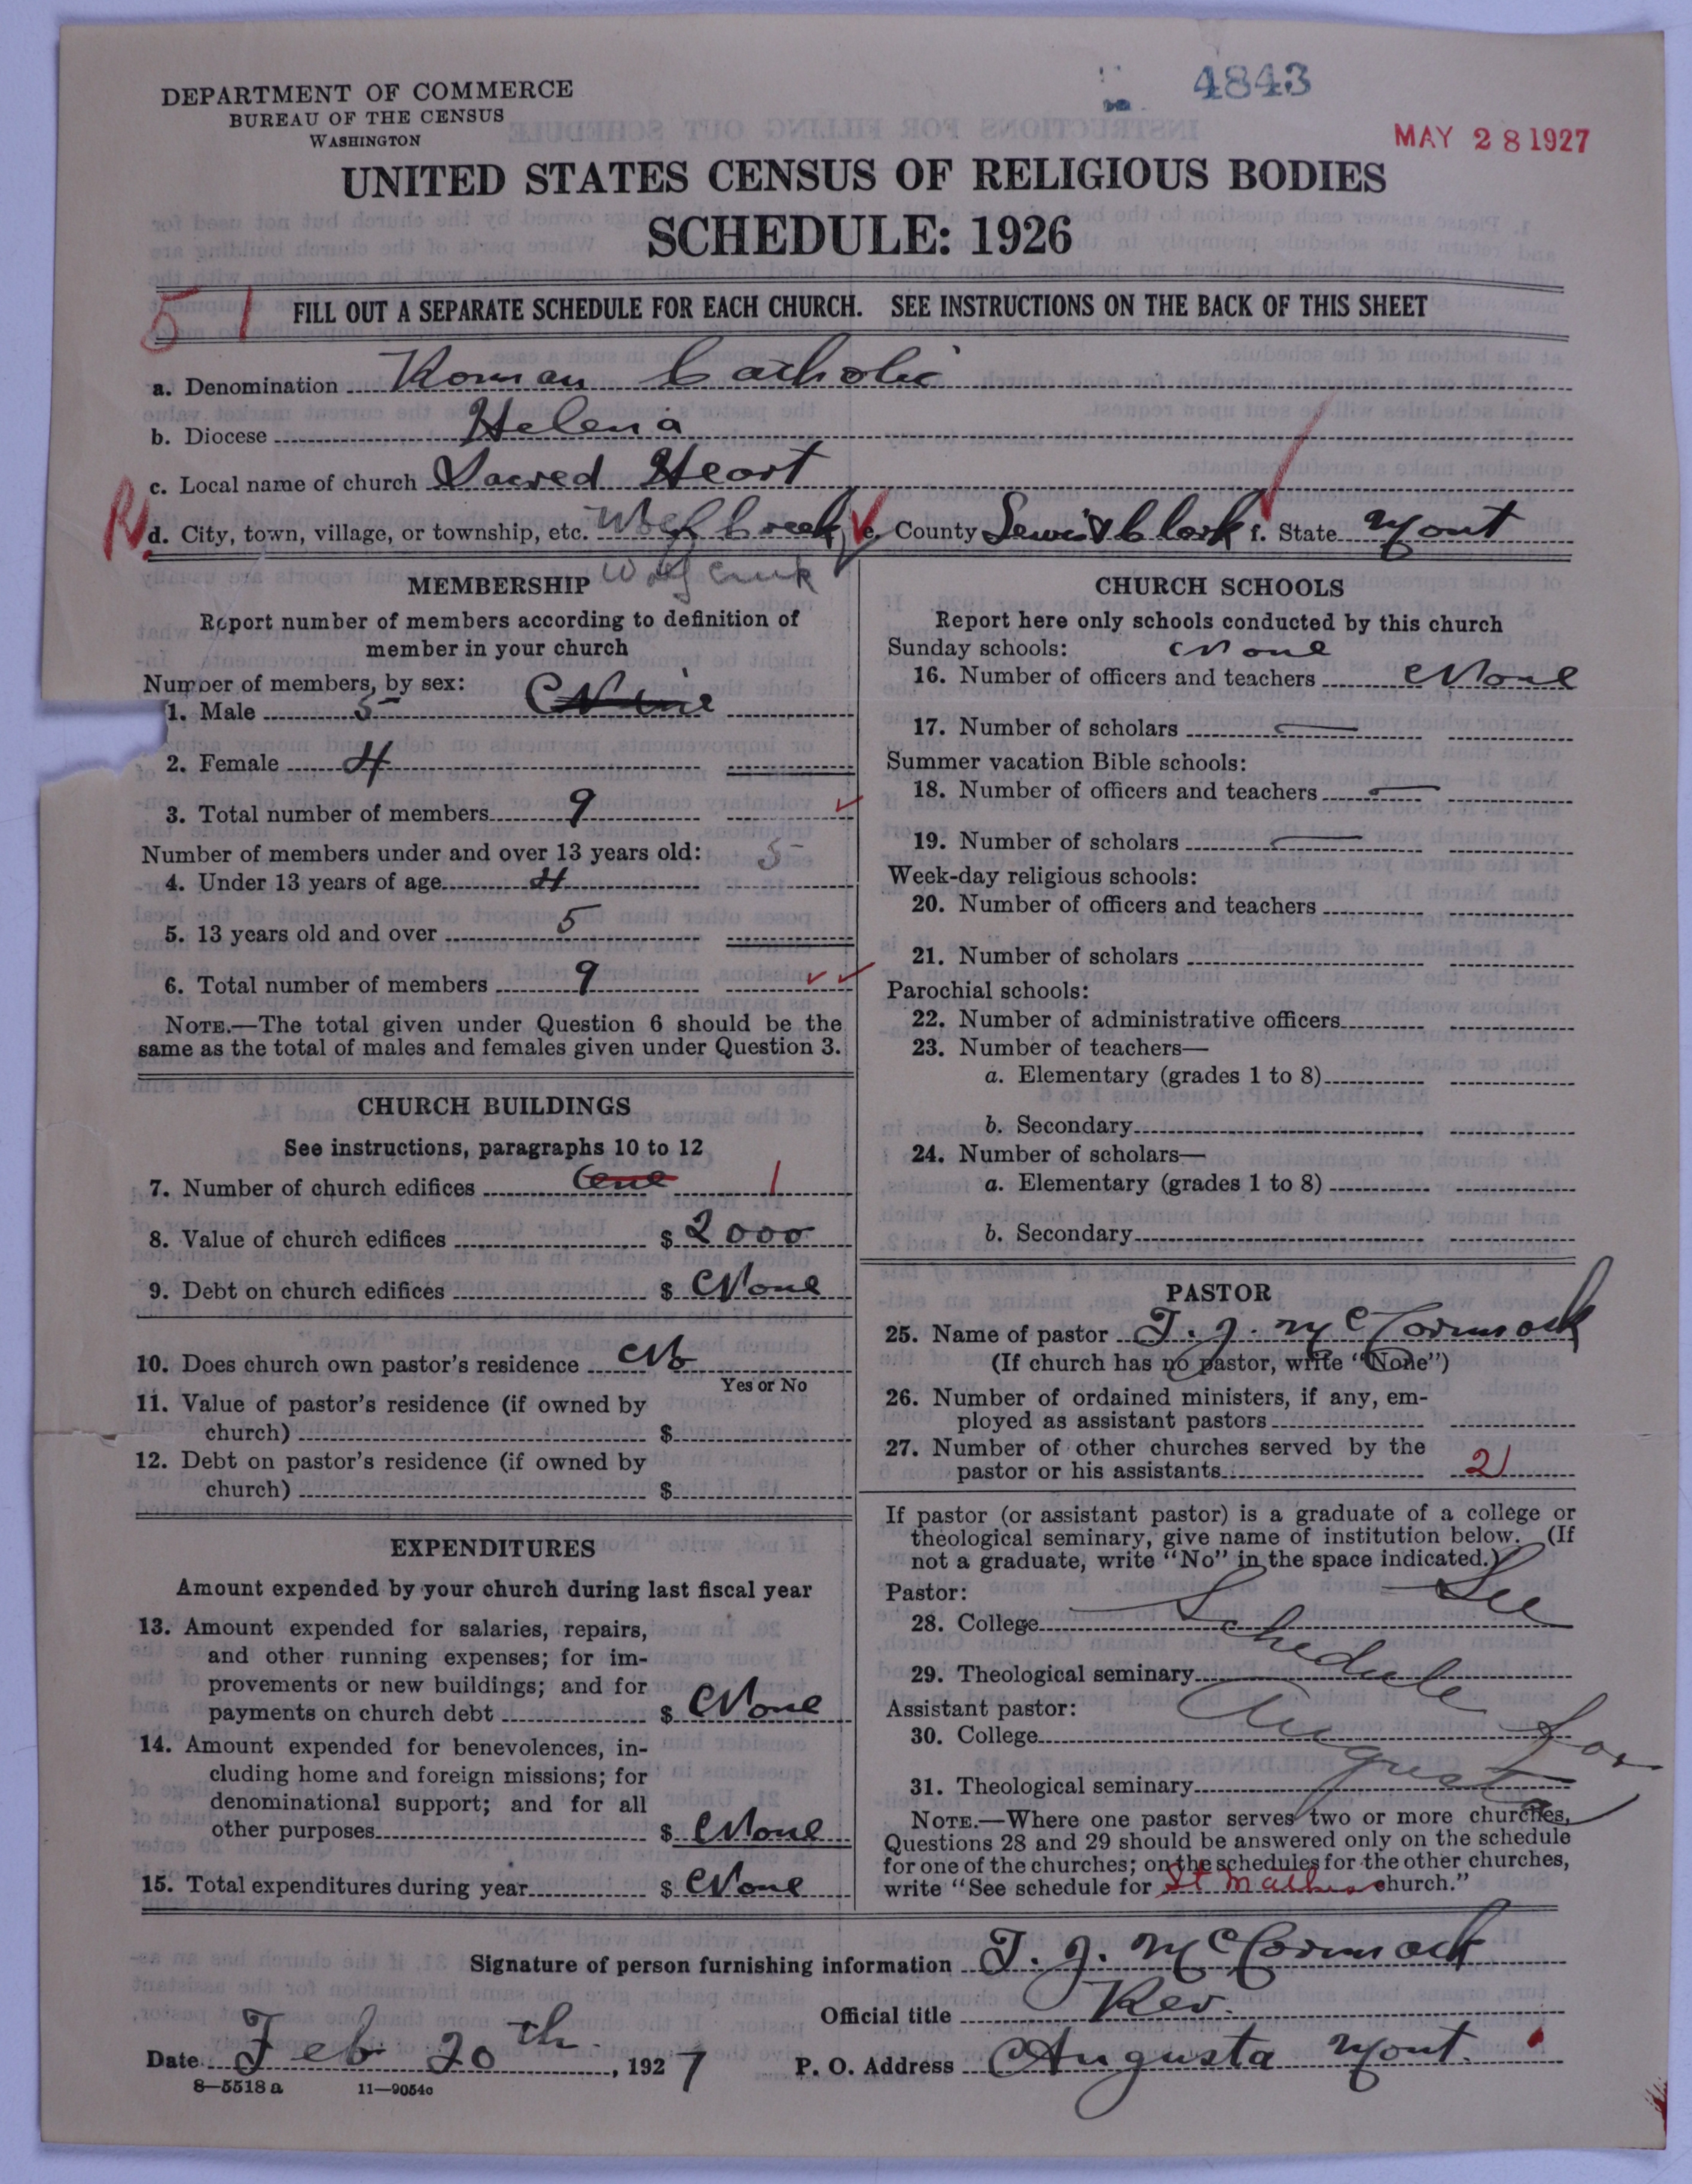 4843
DEPARTMENT OF COMMERCE
BUREAU OF THE CENSUS
WASHINGTON
MAY 28 1927
UNITED STATES CENSUS OF RELIGIOUS BODIES
SCHEDULE: 1926
51 FILL OUT A SEPARATE SCHEDULE FOR EACH CHURCH. SEE INSTRUCTIONS ON THE BACK OF THIS SHEET
a. Denomination Roman Catholic
b. Diocese Helena
c. Local name of church Sacred Heart
d. City, town, village, or township, etc. Wolf Creek e. County Lewis & Clark f. State Mont
Wolf Creek
MEMBERSHIP
Report number of members according to definition of
member in your church
Number of members, by sex:
Nine
1. Male 5
2. Female 4
3. Total number of members 9
Number of members under and over 13 years old: 5
4. Under 13 years of age 4
5. 13 years old and over 5
6. Total number of members 9
NOTE.—The total given under Question 6 should be the
same as the total of males and females given under Question 3.
CHURCH BUILDINGS
See instructions, paragraphs 10 to 12
7. Number of church edifices One 1
8. Value of church edifices $ 2000
9. Debt on church edifices $ None
10. Does church own pastor's residence No
Yes or No
11. Value of pastor's residence (if owned by
church) $
12. Debt on pastor's residence (if owned by
church) $
EXPENDITURES
Amount expended by your church during last fiscal year
13. Amount expended for salaries, repairs,
and other running expenses; for im-
provements or new buildings; and for
payments on church debt $ None
14. Amount expended for benevolences, in-
cluding home and foreign missions; for
denominational support; and for all
other purposes $ None
15. Total expenditures during year $ None
CHURCH SCHOOLS
Report here only schools conducted by this church
Sunday schools: None
16. Number of officers and teachers None
17. Number of scholars —
Summer vacation Bible schools:
18. Number of officers and teachers —
19. Number of scholars —
Week-day religious schools:
20. Number of officers and teachers
21. Number of scholars
Parochial schools:
22. Number of administrative officers
23. Number of teachers—
a. Elementary (grades 1 to 8)
b. Secondary
24. Number of scholars—
a. Elementary (grades 1 to 8)
b. Secondary
PASTOR
25. Name of pastor T. J. McCormack
(If church has no pastor, write "None")
26. Number of ordained ministers, if any, em-
ployed as assistant pastors
27. Number of other churches served by the
pastor or his assistants 2
If pastor (or assistant pastor) is a graduate of a college or
theological seminary, give name of institution below. (If
not a graduate, write "No" in the space indicated.)
Pastor: See
28. College Schedule
29. Theological seminary
Assistant pastor: for
30. College Augusta
31. Theological seminary
NOTE.—Where one pastor serves two or more churches,
Questions 28 and 29 should be answered only on the schedule
for one of the churches; on the schedules for the other churches,
write "See schedule for St church."
Signature of person furnishing information T. J. McCormack
Official title Rev.
Date Feb 20th, 1927 P. O. Address Augusta Mont.
8—5518 a 11—9054c